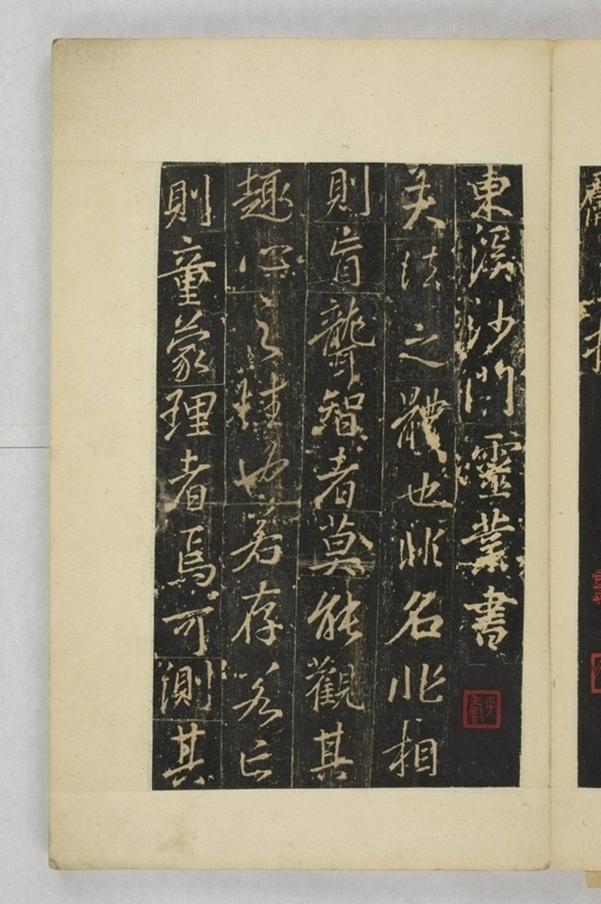 東溪沙門靈業書
夫法之體也非名非相
則盲聾智者莫能觀其
趣心之性也若存若亡
則童蒙理者焉可測其